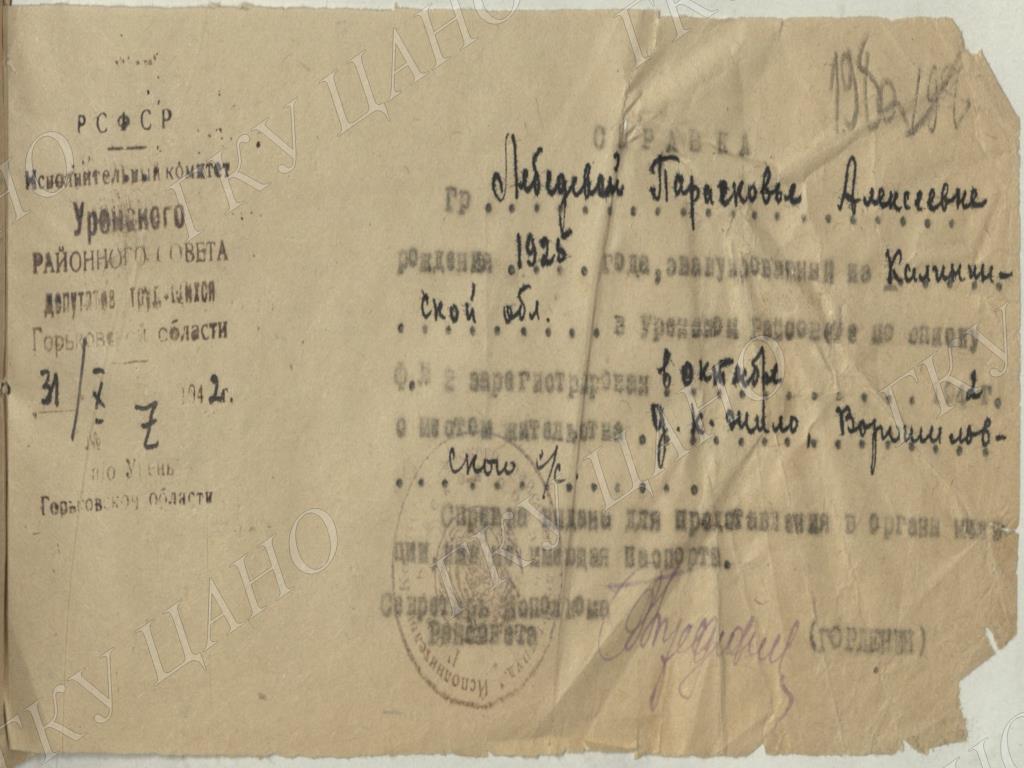 РСФСР
Исполнительный комитет
Уренского
РАЙОННОГО СОВЕТА
депутатов трудящихся
Горьковской области
31/X 1942г.
№ 7
п/о Урень
Горьковской области
СПРАВКА
Гр. Лебедевой Парасковье Алексеевне
рождения 1925 года, эвакуированный из Калинин-
ской обл. в Уренском Райсовете по списку
Ф.№ 2 зарегистрирован в октябре 1942 г.
с местом жительства Ворошилов-
ского с/с.
Справка выдана для представления в органы мили-
ции, как не имеющая паспорта.
Секретарь исполкома
Райсовета (ГОРДЕНИН)
ГКУ ЦАНО